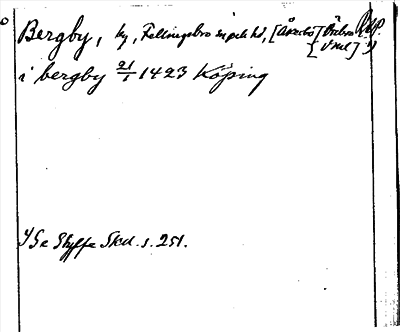 Bergby, by, Fellingsbro sn och hd, [Åkerbo] Örebro RAP.
[Vml] 1)
i bergby 21/1 1423 Köping
1) Se Styffe Skd. s. 251.